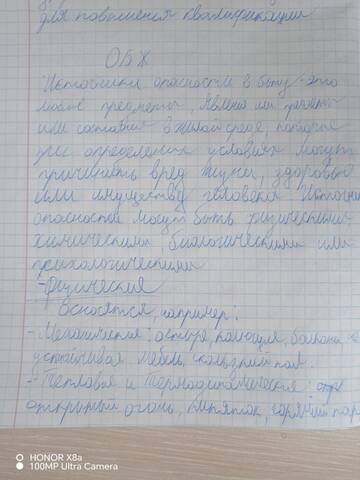 для повышения квалификации
ОБЖ
Источники опасности в быту - это
любые предметы, явления или
или состояния в жилой среде, которые
при определённых условиях могут
причинить вред жизни, здоровью
или имуществу человека Источники
опасности могут быть физическими
химическими, биологическими или
психологическими
- Физические
Относятся, например:
- Механические: острые, колющие,
устойчивая мебель, скользкий пол.
- Тепловые и термодинамические:
открытый огонь, кипяток, горячий пар
HONOR X8a
100MP Ultra Camera